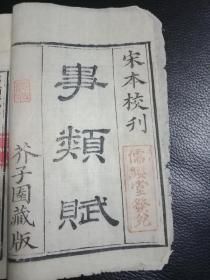 宋本校刊
事類賦
芥子園藏版